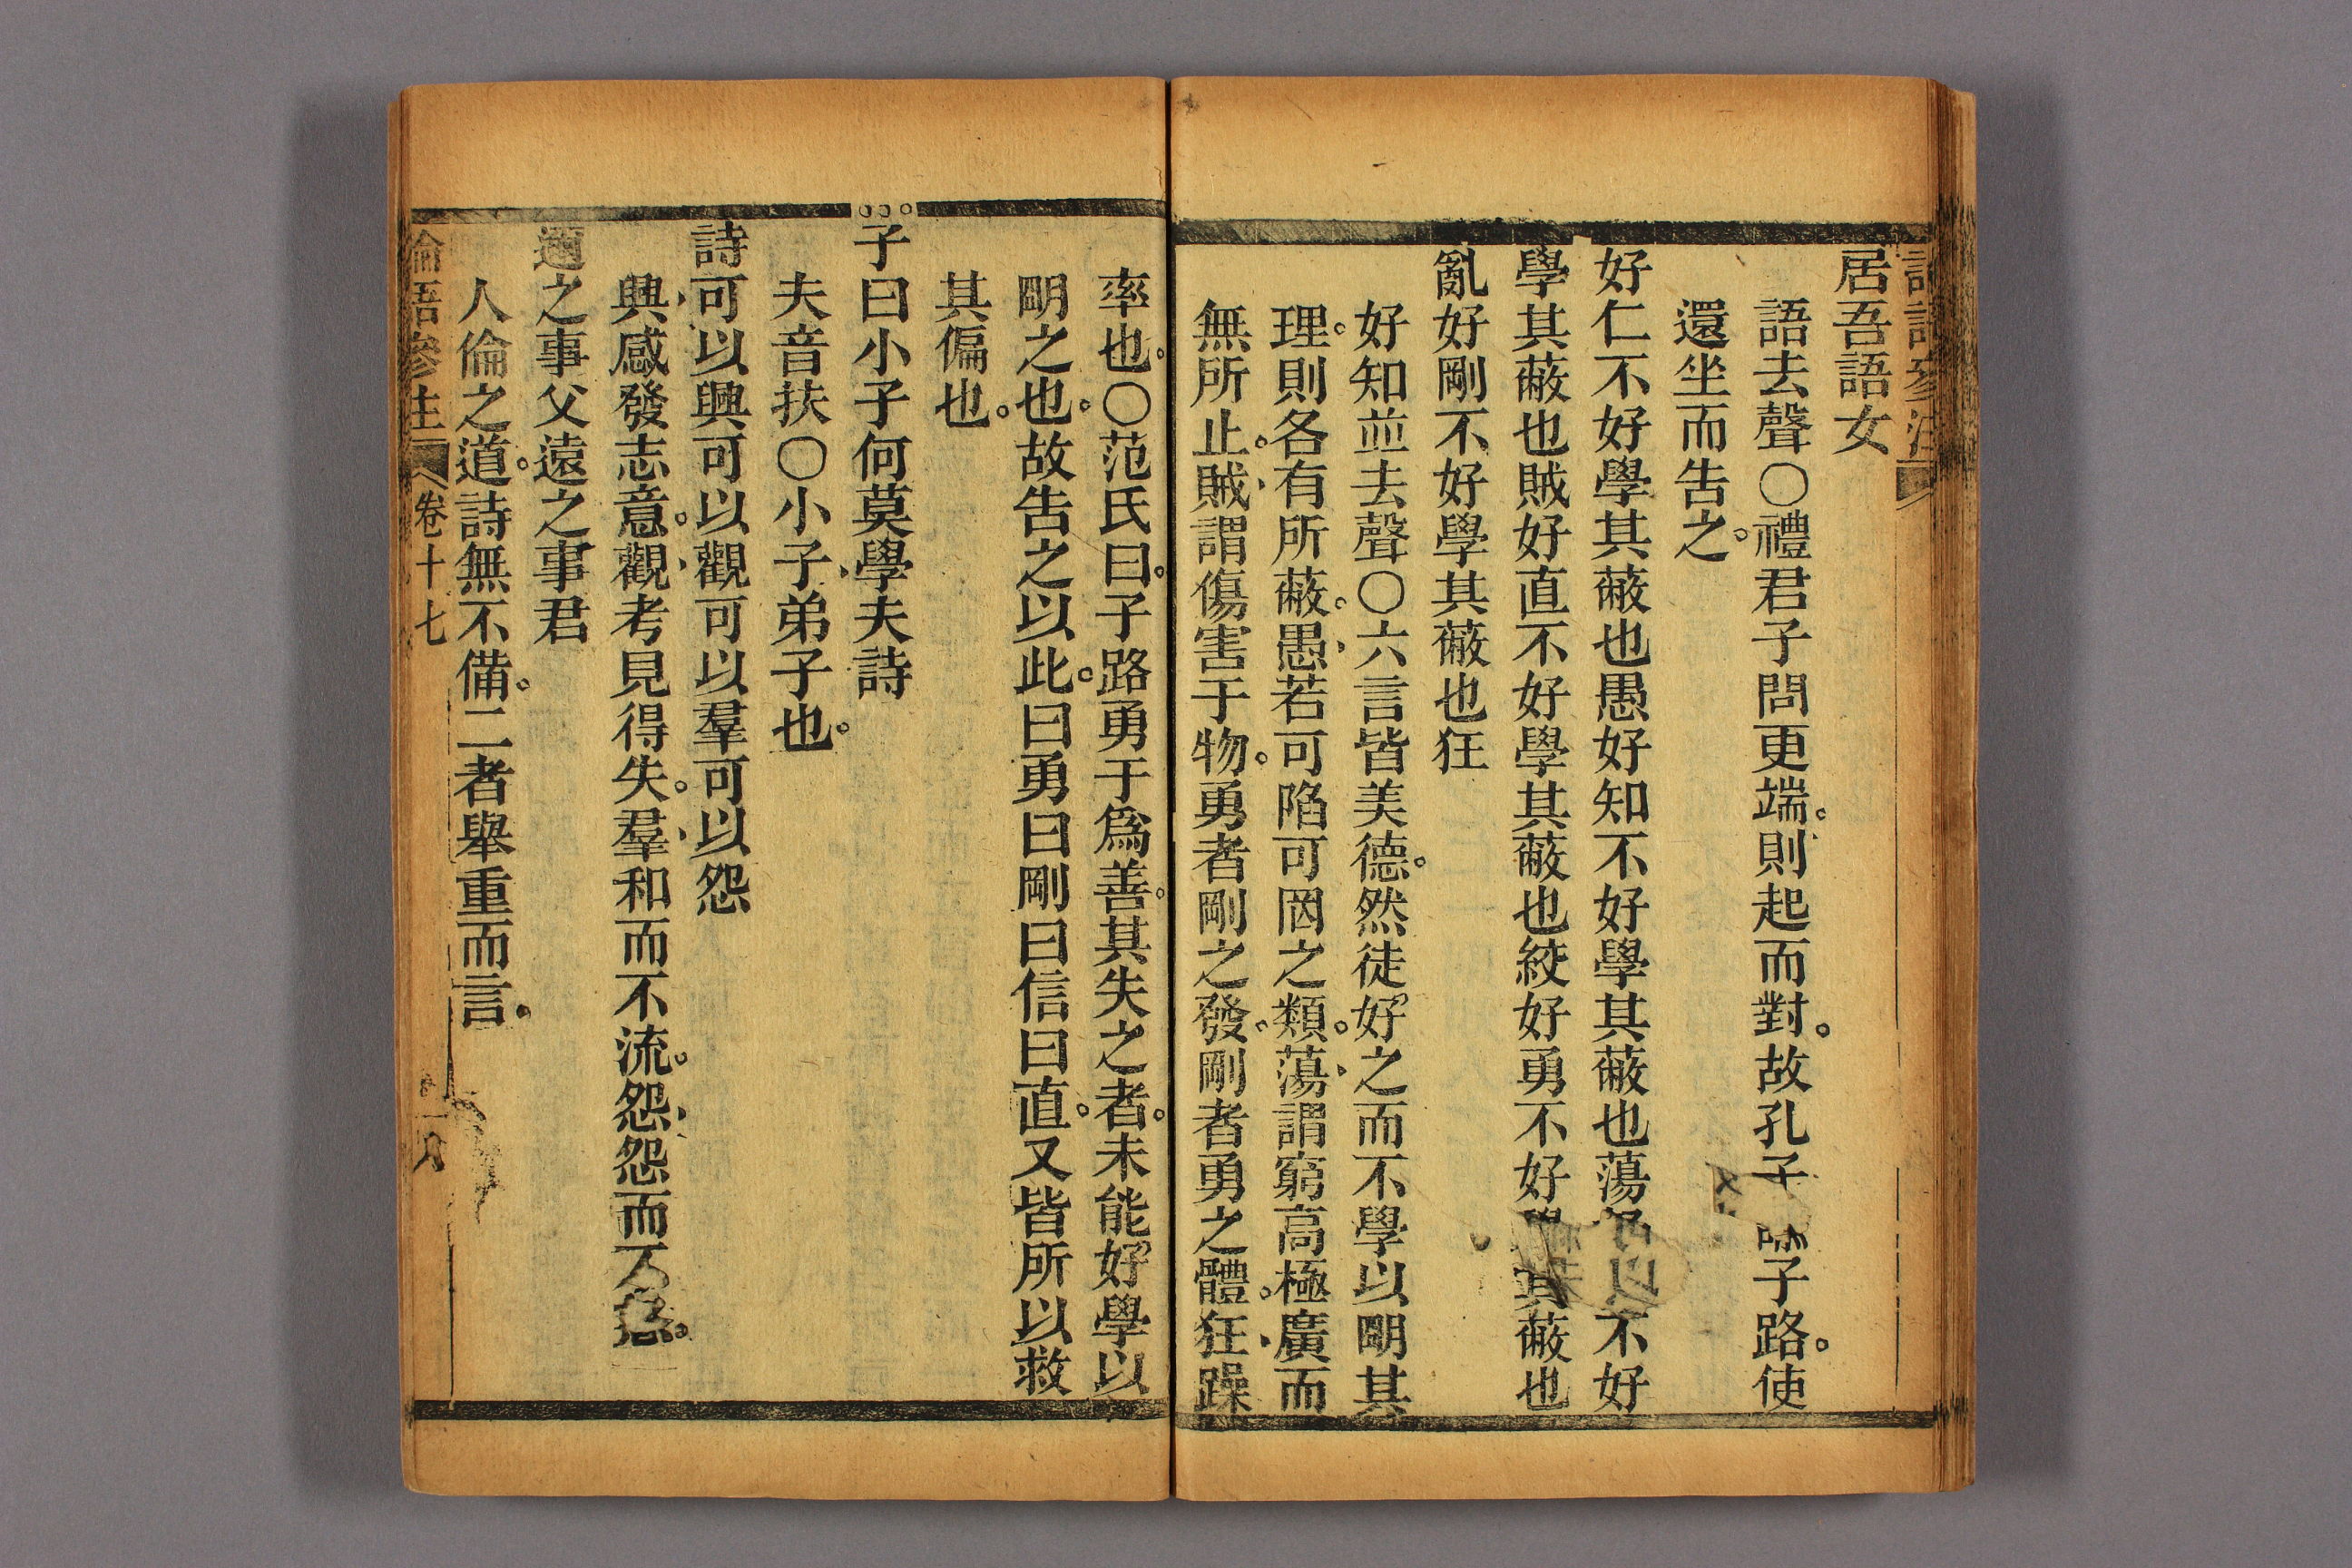 居吾語女
語去聲○禮君子問更端。則起而對。故孔子 子路。使
還坐而告之。
好仁不好學其蔽也愚好知不好學其蔽也蕩 不好
學其蔽也賊好直不好學其蔽也絞好勇不好 其蔽也
亂好剛不好學其蔽也狂
好知並去聲○六言皆美德。然徒好之而不學以明其
理。則各有所蔽。愚、若可陷可罔之類。蕩、謂窮高極廣而
無所止。賊、謂傷害于物。勇者剛之發。剛者勇之體。狂、躁
率也。○范氏曰。子路勇于爲善。其失之者。未能好學以
明之也。故告之以此。曰勇曰剛曰信曰直。又皆所以救
其偏也。
子曰小子何莫學夫詩
夫音扶○小子、弟子也。
詩可以興可以觀可以羣可以怨
興、感發志意。觀、考見得失。羣、和而不流。怨、怨而不
邇之事父遠之事君
人倫之道。詩無不備。二者舉重而言。
論語參注 卷十七